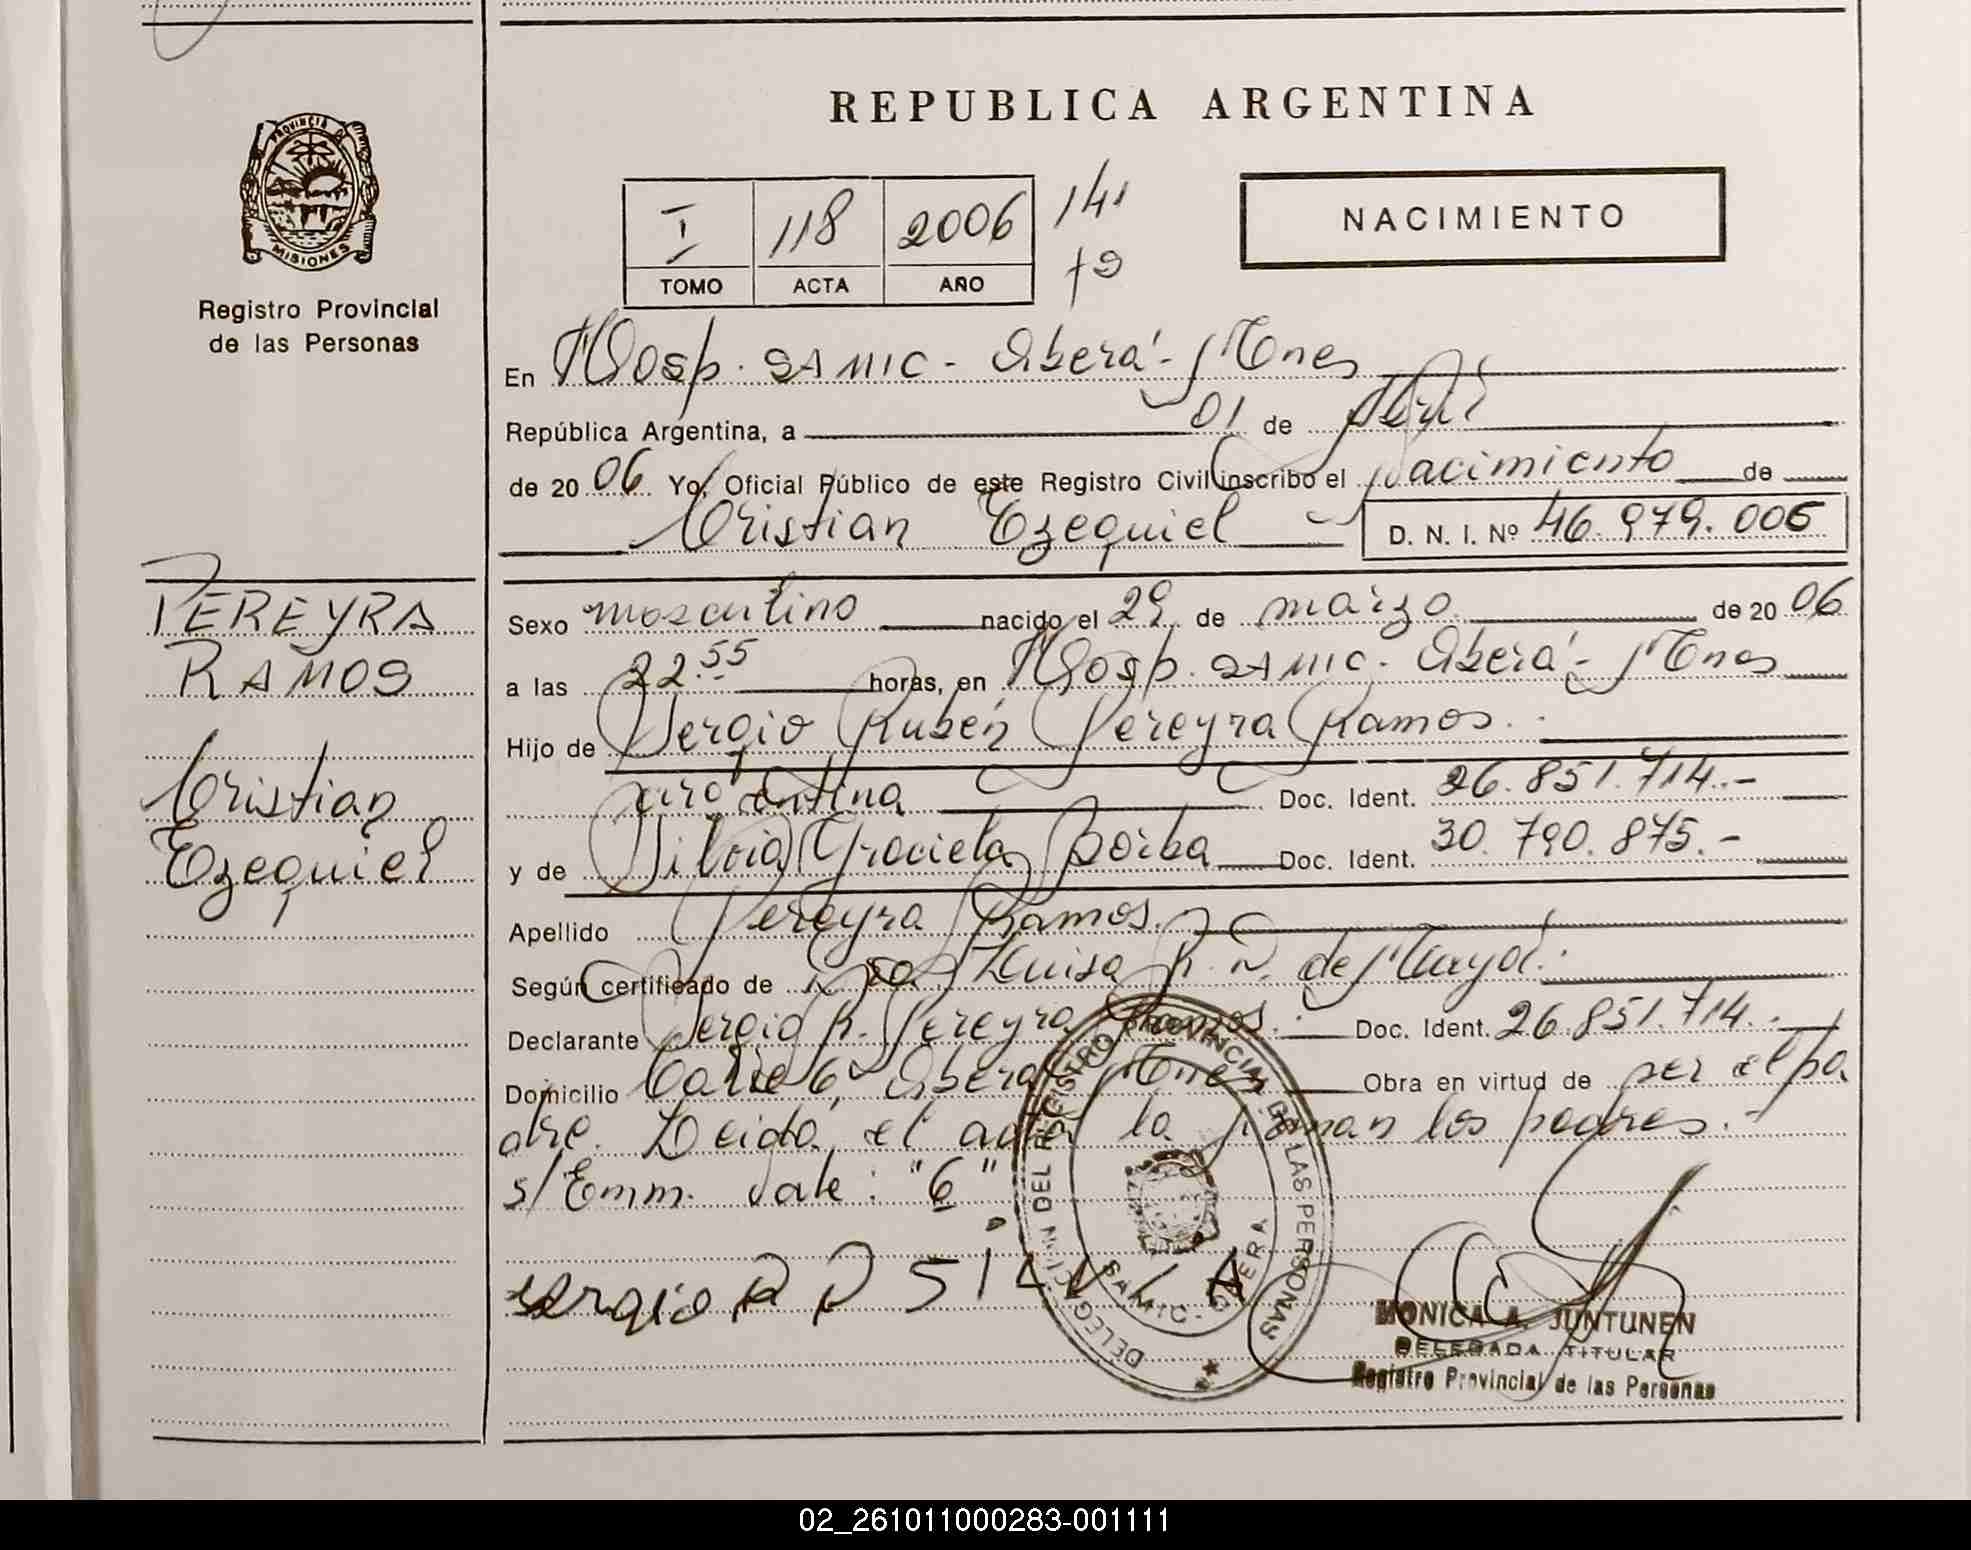 REPUBLICA ARGENTINA
PROVINCIA DE
MISIONES
Registro Provincial
de las Personas
I 118 2006 141
TOMO ACTA AÑO
NACIMIENTO
En Hosp. SAMIC - Oberá - Mnes
República Argentina, a 01 de Abril
de 20 06 Yo, Oficial Público de este Registro Civil inscribo el Nacimiento de
Cristian Ezequiel D. N. I. Nº 46.979.006
PEREYRA
RAMOS
Cristian
Ezequiel
Sexo masculino nacido el 29 de marzo de 20 06
a las 22.55 horas, en Hosp. SAMIC - Oberá - Mnes
Hijo de Sergio Rubén Pereyra Ramos.
argentina Doc. Ident. 26.851.714.-
y de Silvia Graciela Borba Doc. Ident. 30.790.875.-
Apellido Pereyra Ramos.
Según certificado de Luisa R. N. de
Declarante Sergio R. Pereyra Ramos. Doc. Ident. 26.851.714.
Domicilio Calle 6, Oberá Mnes Obra en virtud de ser el pa
dre. Leida el acta la firman los padres.-
s/Emm. Vale: "6"
sergio R P SILVIA
DELEGACION DEL REGISTRO PROVINCIAL DE LAS PERSONAS
SAMIC - OBERA
MONICA A. JUNTUNEN
DELEGADA TITULAR
Registro Provincial de las Personas
02_261011000283-001111